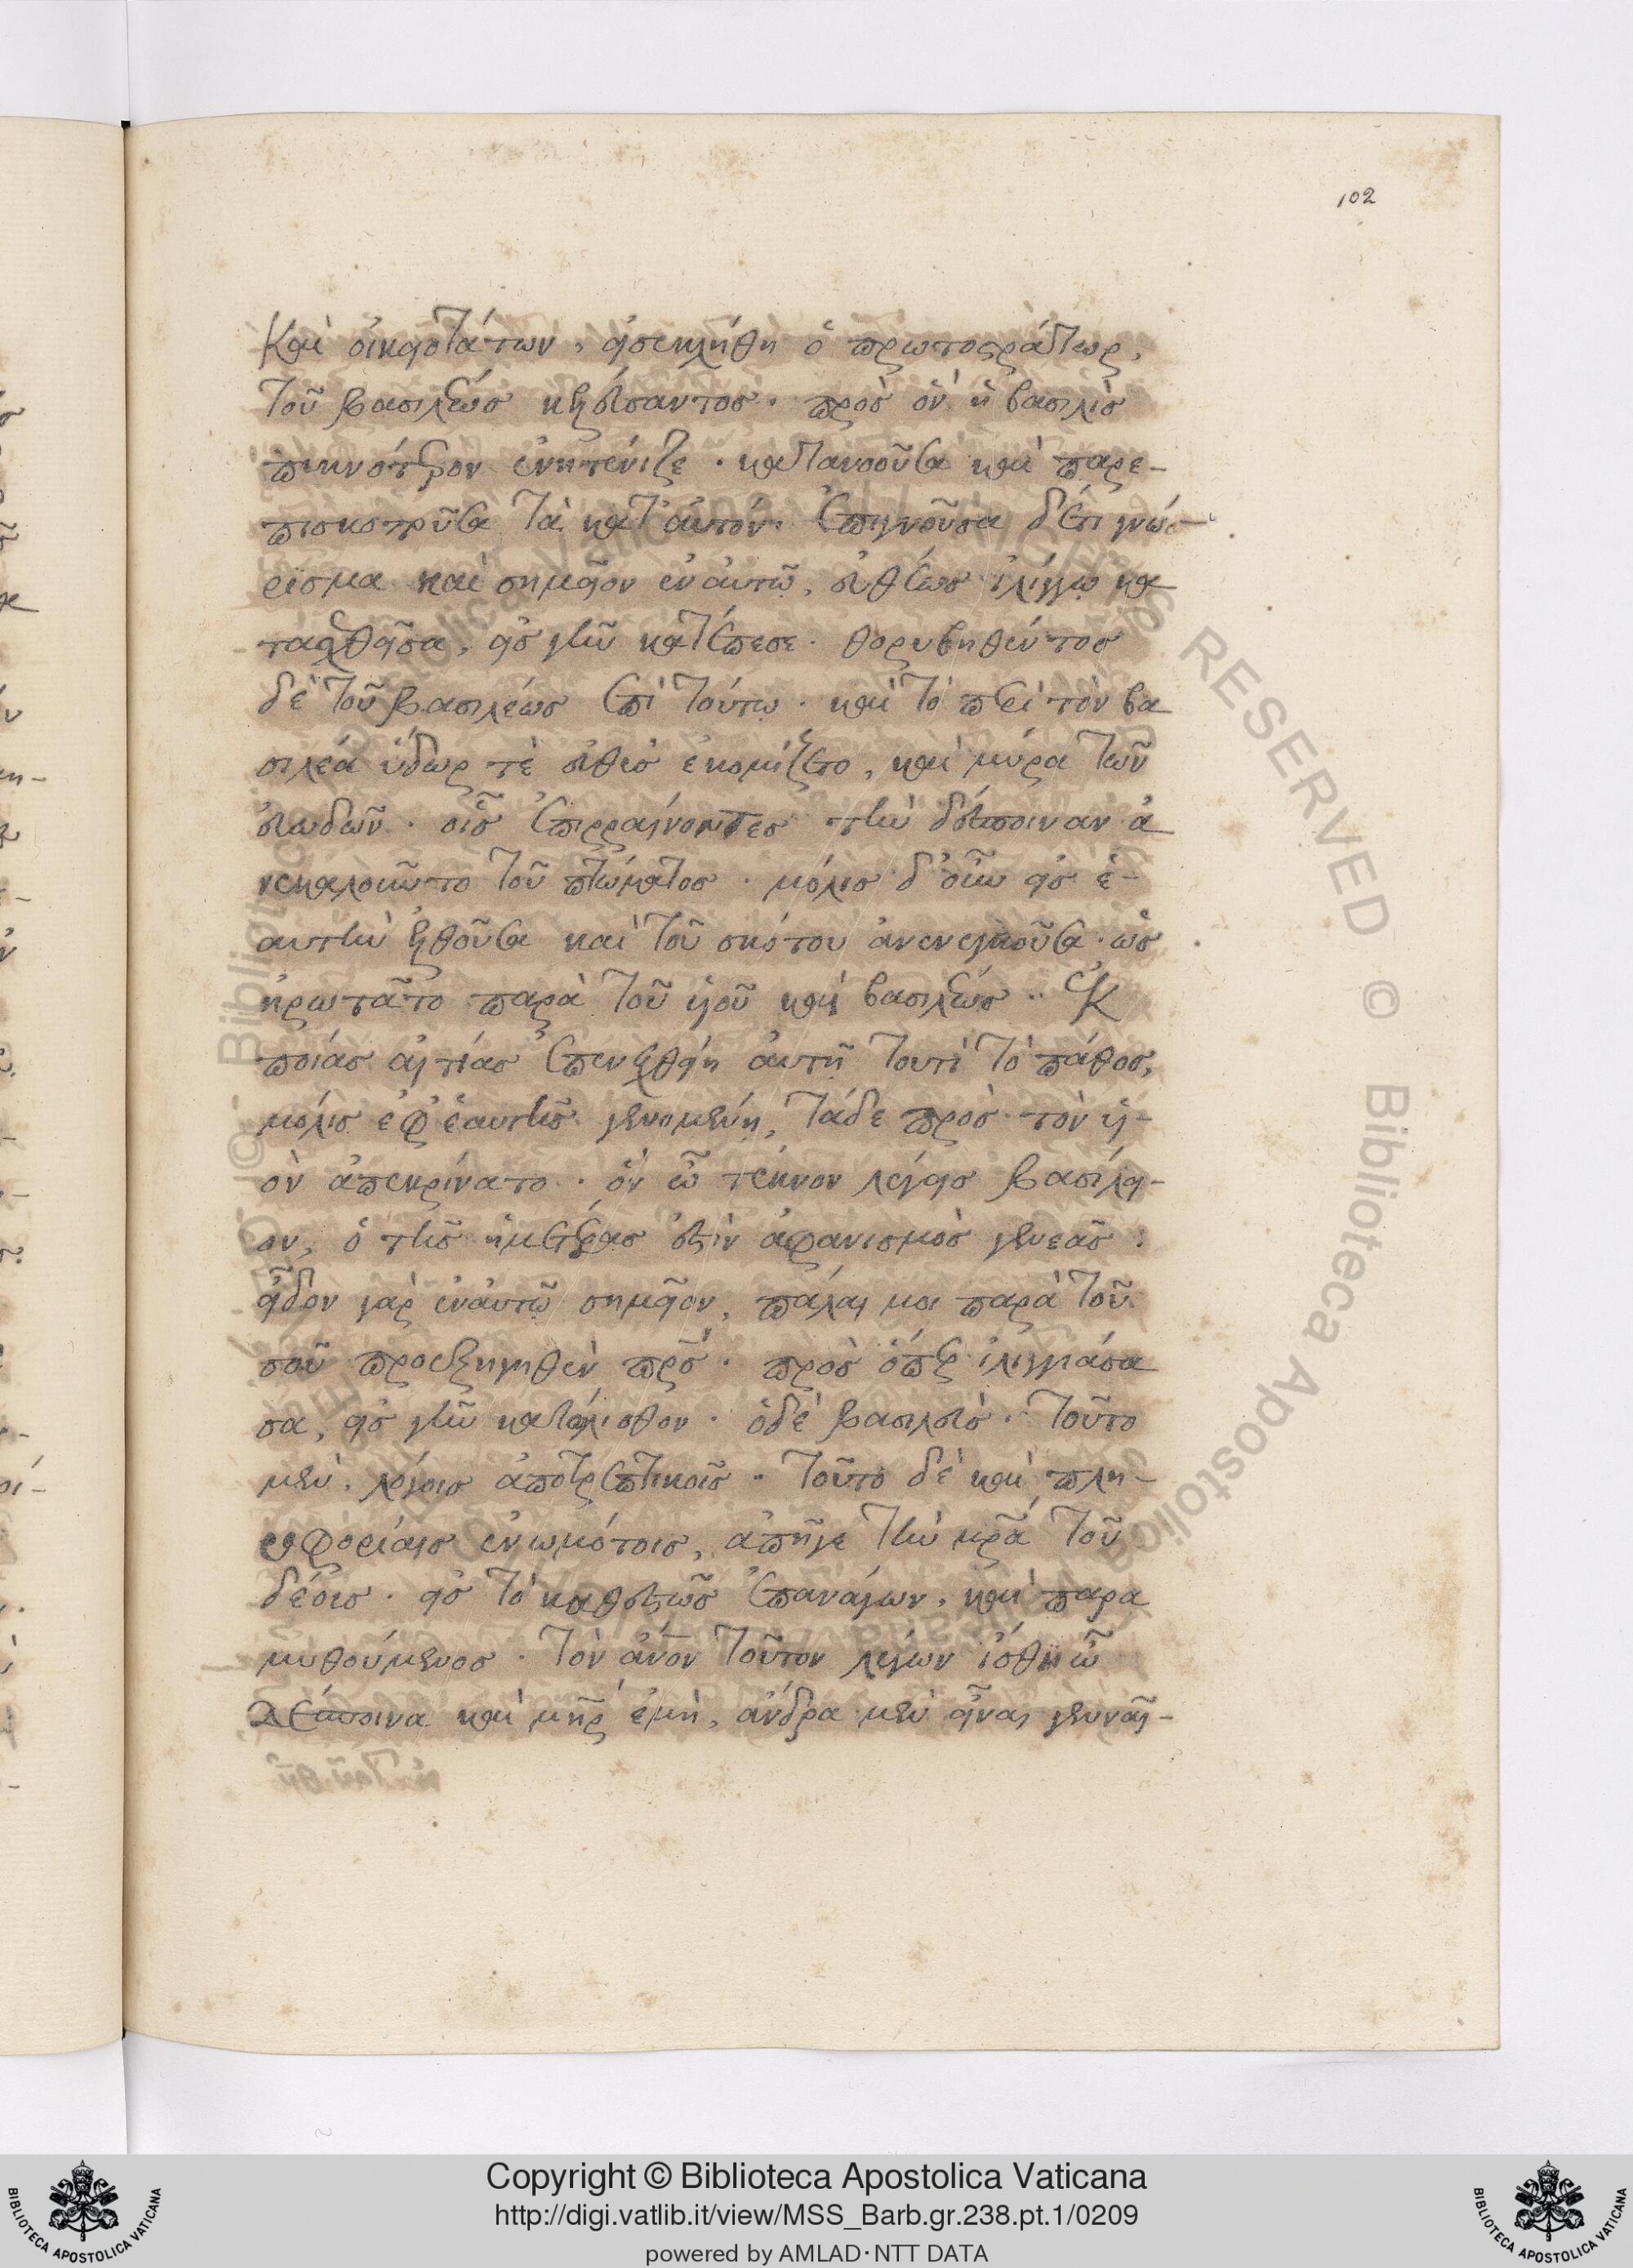 102
καὶ οἰκειοτάτων, εἰσεκλήθη ὁ πρωτοστράτωρ,
τοῦ βασιλέως κελεύσαντος· πρὸς ὃν ἡ βασιλὶς
πυκνότερον ἐνητένιζε· κατανοοῦσα καὶ παρε-
πισκοποῦσα τὰ κατ' αὐτόν. ἐπιγνοῦσα δέ τι γνώ-
ρισμα καὶ σημεῖον ἐν αὐτῷ, εὐθέως ἰλίγγῳ κα
ταχθεῖσα, εἰς γῆν κατέπεσε· θορυβηθέντος
δὲ τοῦ βασιλέως ἐπὶ τούτῳ· καὶ τὸ περὶ τὸν βα
σιλέα ὕδωρ τὲ εὐθὺς ἐκομίζετο, καὶ μύρα τῶν
εὐωδῶν· οἷς ἐπιρραίνοντες τὴν δέσποιναν ἀ
νεκαλοῦντο τοῦ πτώματος· μόλις δ' οὖν εἰς ἑ-
αυτὴν ἐλθοῦσα καὶ τοῦ σκότου ἀνενεγκοῦσα· ὡς
ἠρωτᾶτο παρὰ τοῦ υἱοῦ καὶ βασιλέως·· ἐκ
ποίας αἰτίας ἐπενεχθείη αὐτῇ τουτὶ τὸ πάθος,
μόλις ἐφ' ἑαυτῆς γενομένη, τάδε πρὸς τὸν υἱ-
ὸν ἀπεκρίνατο· ὃν ὦ τέκνον λέγεις βασίλει-
ον, ὁ τῆς ἡμετέρας ἐστὶν ἀφανισμὸς γενεᾶς:
εἶδον γὰρ ἐν αὐτῷ σημεῖον, πάλαι μοι παρὰ τοῦ
σοῦ προεξηγηθὲν πρς· πρὸς ὅπερ ἰλιγγιάσα
σα, εἰς γῆν κατώλισθον· ὁ δὲ βασιλεὺς· τοῦτο
μὲν. λόγοις ἀποτρεπτικοῖς· τοῦτο δὲ καὶ πλη-
ροφορίαις ἐνωμότοις, ἀπῆγε τὴν μρα τοῦ
δέους· εἰς τὸ καθεστὼς ἐπανάγων, καὶ παρα
μυθούμενος· τὸν ἄνον τοῦτον λέγων ἴσθι ὦ
δέσποινα καὶ μηρ ἐμὴ, ἄνδρα μὲν εἶναι γενναῖ-
Copyright © Biblioteca Apostolica Vaticana
http://digi.vatlib.it/view/MSS_Barb.gr.238.pt.1/0209
powered by AMLAD·NTT DATA